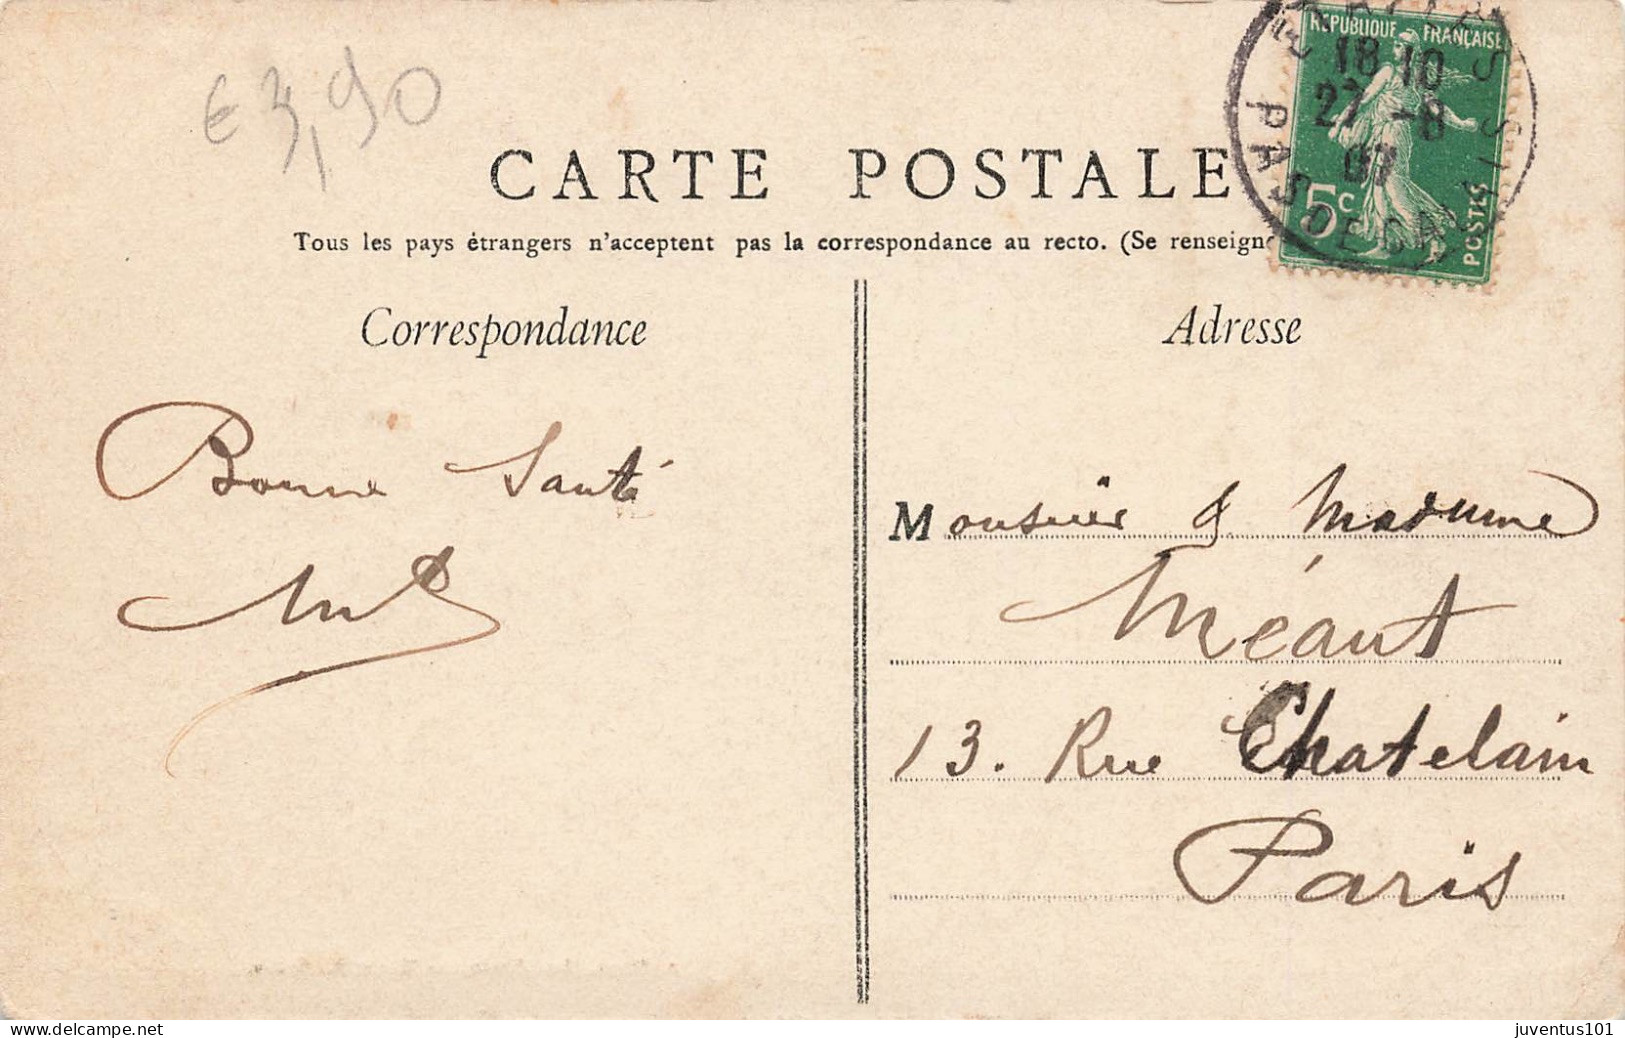 € 3,90
CARTE POSTALE
Tous les pays étrangers n'acceptent pas la correspondance au recto. (Se renseign
RÉPUBLIQUE FRANÇAISE
5c
POSTES
18 10
27 -8
07
PAS DE CA
Correspondance
Bonne Santé
Adresse
Monsieur & Madame
Méaut
13. Rue Chatelain
Paris
delcampe.net
juventus101